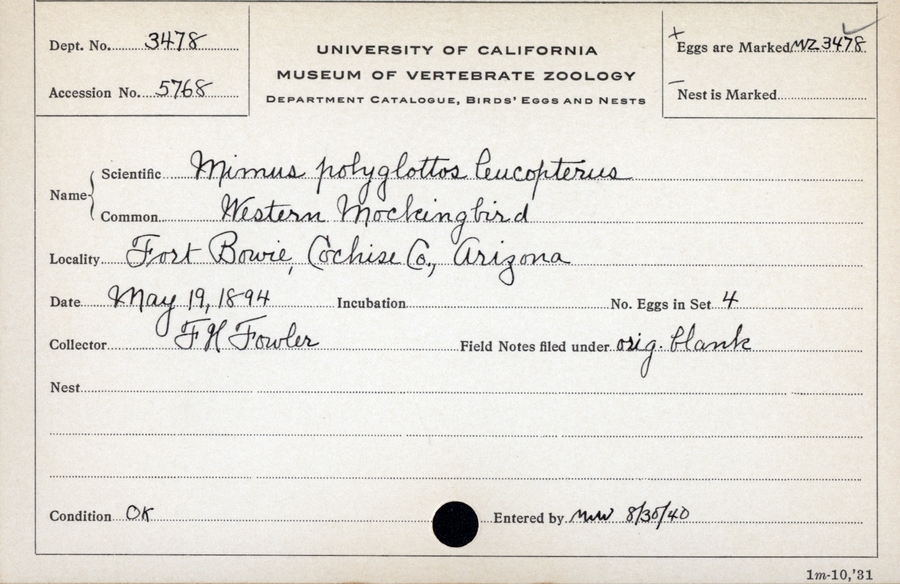 Dept. No. 3478
Accession No. 5768
UNIVERSITY OF CALIFORNIA
MUSEUM OF VERTEBRATE ZOOLOGY
DEPARTMENT CATALOGUE, BIRDS' EGGS AND NESTS
+ Eggs are Marked MZ 3478 ✓
– Nest is Marked
Name { Scientific Mimus polyglottos leucopterus
Common Western Mockingbird
Locality Fort Bowie, Cochise Co., Arizona
Date May 19, 1894 Incubation No. Eggs in Set 4
Collector F H Fowler Field Notes filed under orig. blank
Nest
Condition OK Entered by MW 8/30/40
1m-10,'31